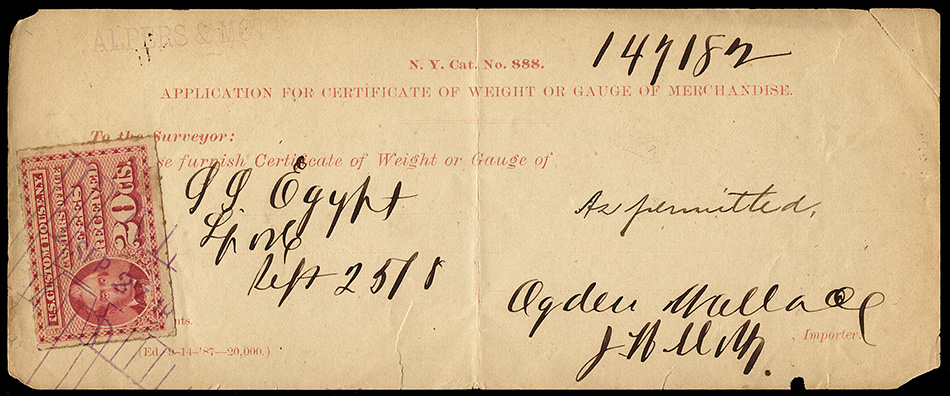 ALPERS & MOTT
147182
N. Y. Cat. No. 888.
APPLICATION FOR CERTIFICATE OF WEIGHT OR GAUGE OF MERCHANDISE.
To the Surveyor:
se furnish Certificate of Weight or Gauge of
S S Egypt
As permitted,
L'pool
Sept 25/8
U.S. CUSTOM HOUSE, N.Y.
CASHIER'S OFFICE
20 CENTS
RECEIVED
20 Cts.
Ogden Wallace
, Importer.
nts.
(Ed. 9-14-'87—20,000.)